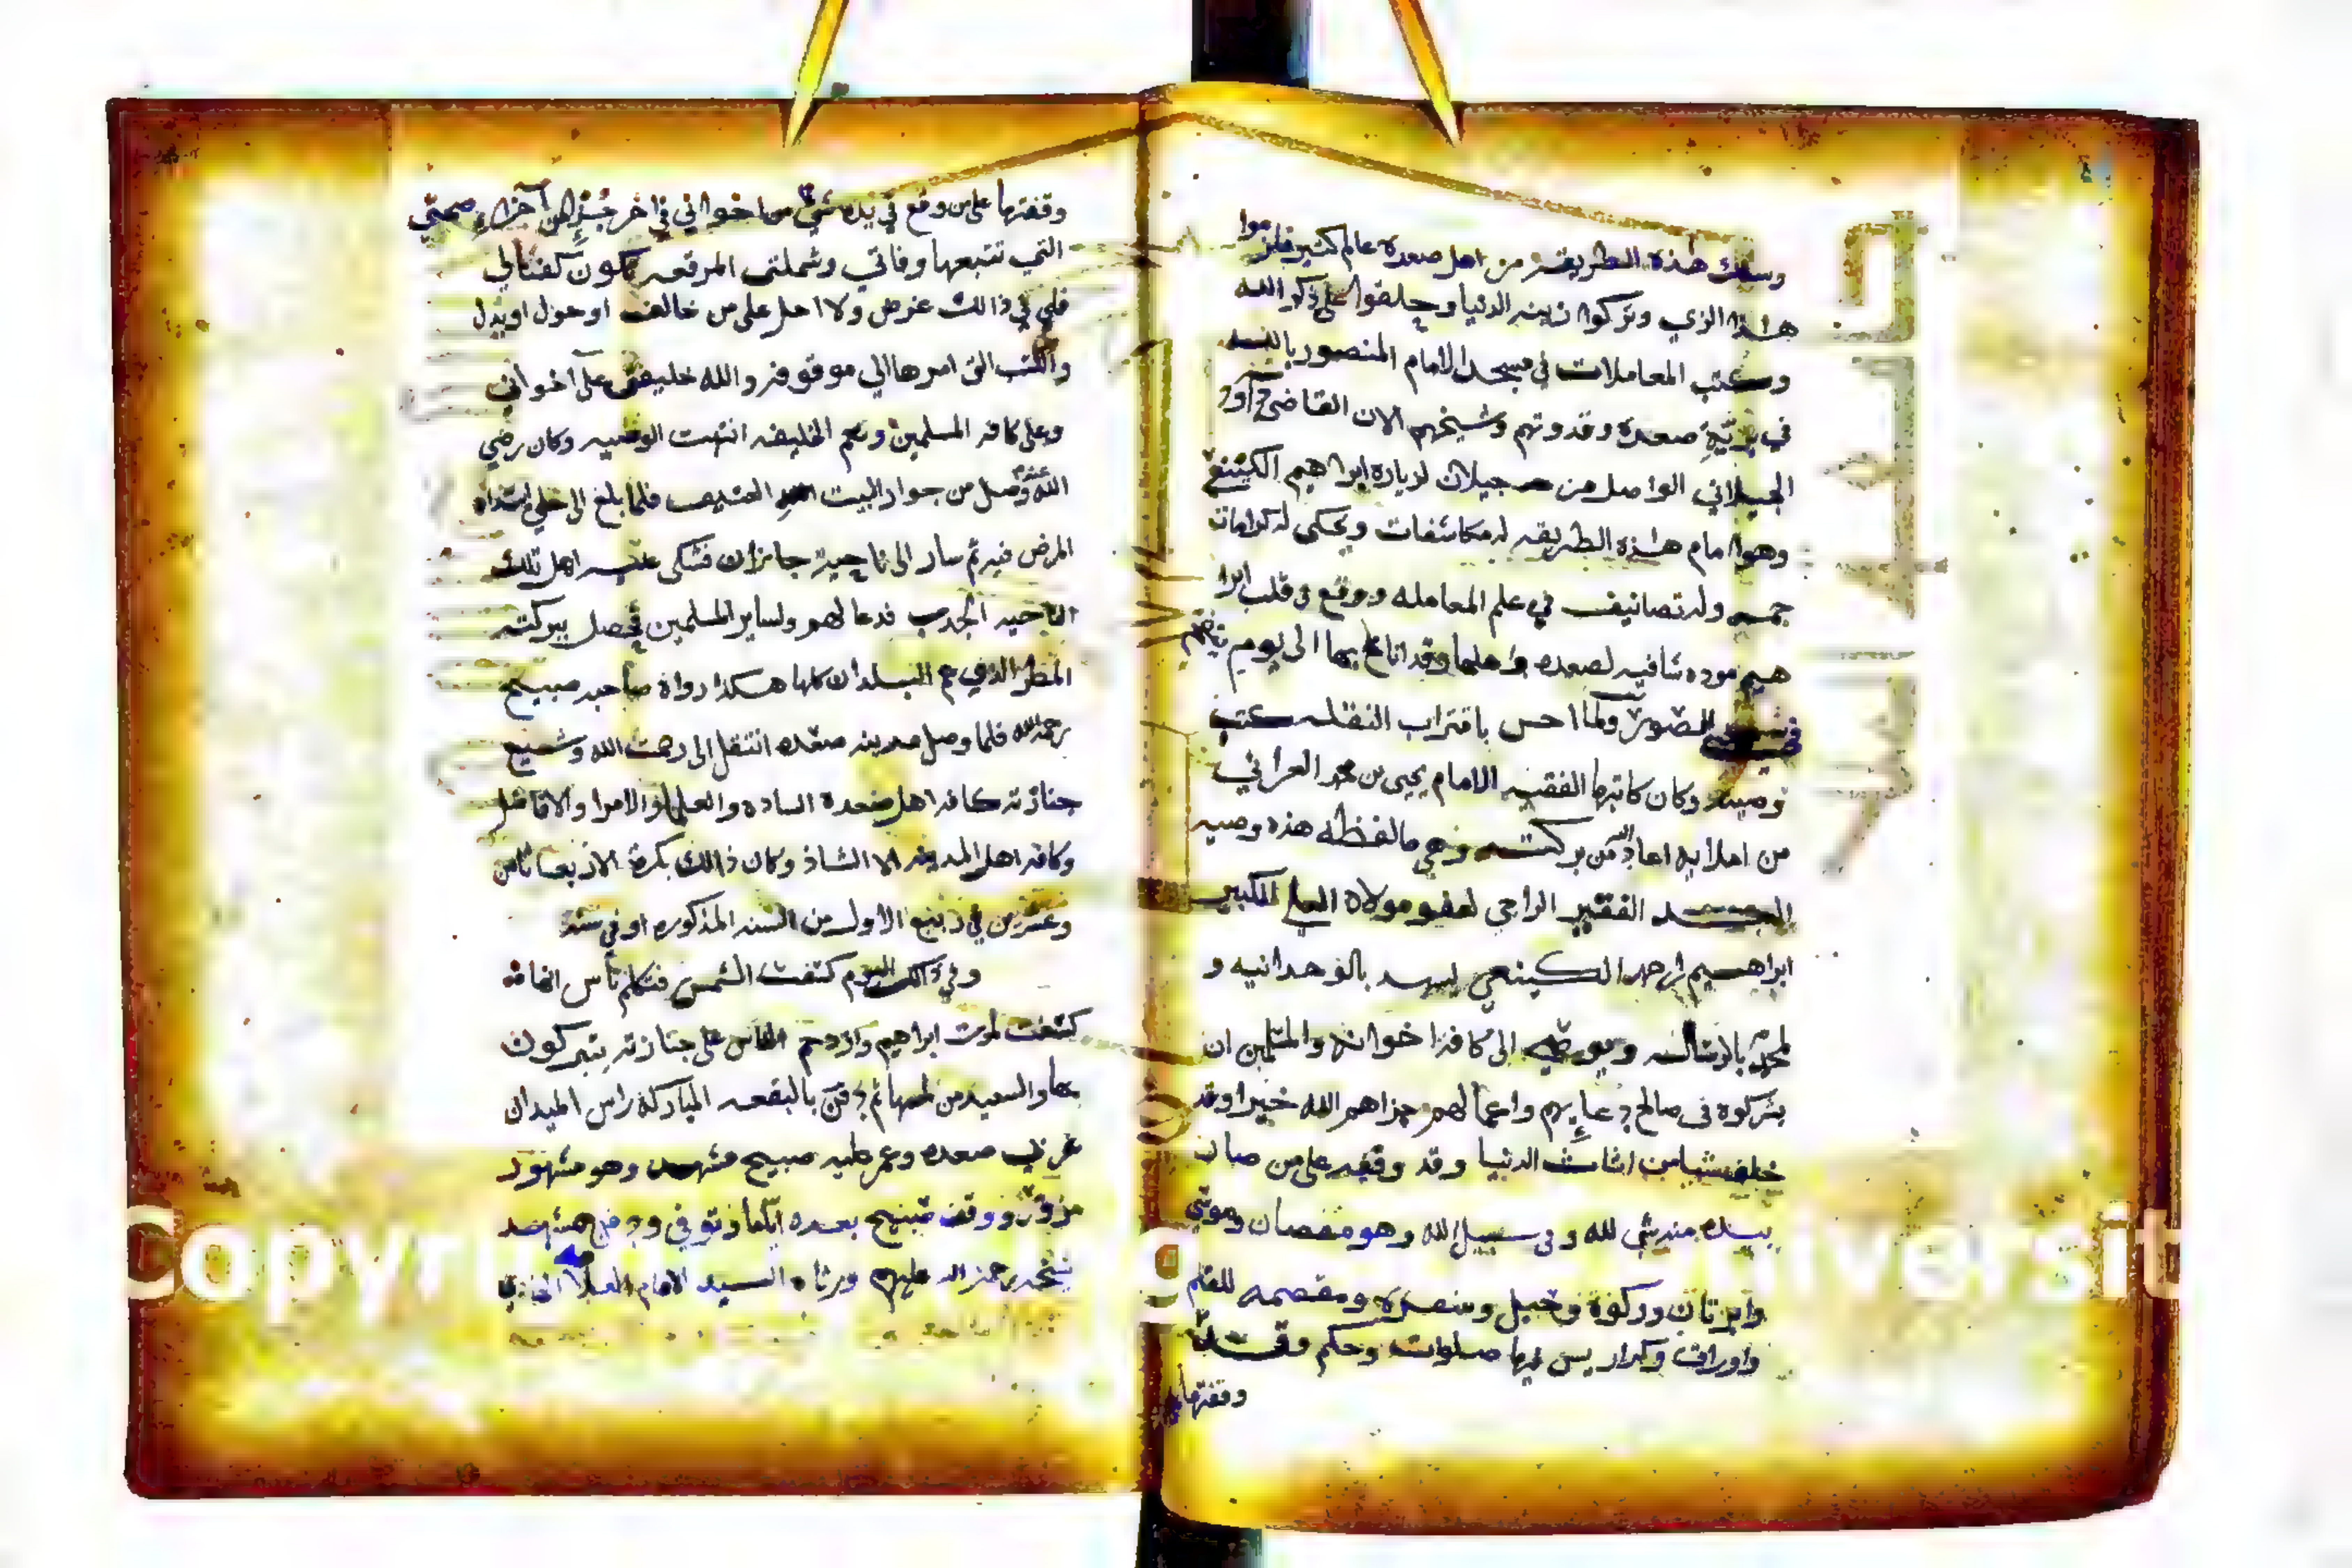 وسلك هذه الطريقه من اهل صعده عالم كثير فلزموا
هذا الزي وتركوا زينه الدنيا وحلقوا على ذكر الله
وكتب المعاملات في مسجد الامام المنصور بالله
في صعده وقدوتهم وشيخهم الان القاضي
الجيلاني الواصل من جيلان لزياره ابراهيم الكينعي
وهو امام هذه الطريقه له مكاشفات ويحكى له كرامات
جمه وله تصانيف في علم المعامله ووقع في قلب ابرا
هيم موده شافيه لصعده واهلها وقد اناخ بها الى يوم
الصور ولما احس باقتراب النقله كتب
وصيته وكان كاتبها الفقيه الامام يحيى بن محمد العراني
من املايه اعاد الله من بركته وهي مالفظه هذه وصيه
العبد الفقير الراجي لعفو مولاه العلي الكبير
ابراهيم بن احمد الكينعي يشهد بالوحدانيه و
لمحمد بالرساله ويوصي الى كافة اخوانه والمسلمين ان
يشركوه في صالح دعايهم واعمالهم جزاهم الله خيرا وقد
خلف شيا من اثاث الدنيا وقد وقفه على من صار
بيده منه شي لله وفي سبيل الله وهو مقصان
وركوة وحبل ومقصمه للقلم
واوراق وكراريس فيها صلوات وحكم وقد
وقفتها
وقفتها على من وقع في يده شي من اخواني في اخر جزء من آجزاء صحتي
التي تتبعها وفاتي وشملتي المرقعه تكون كفنا لي
فلي في ذالك غرض ولا احل على من خالف او حول او بدل
والكتب التي امرها الي موقوفه والله خليفتي على آخواني
وعلى كافه المسلمين ونعم الخليفه انتهت الوصيه وكان رضي
الله عنه وصل من جوار البيت العتيق فلما بلغ الى حلي ابتداه
المرض فيه ثم سار الى ناحية جازان فشكى عليه اهل تلك
الناحيه الجدب فدعا لهم ولساير المسلمين فحصل ببركته
المطر الذي عم البلدان كلها هكذا رواه صاحبه صبيح
رحمه الله فلما وصل مدينه صعده انتقل الى رحمت الله وشيع
جنازته كافه اهل صعدة الساده والعلما والامرا والافاضل
وكافه اهل المدينه الا الشاذ وكان ذالك بكرة الاربعا ثامن
وعشرين في ربيع الاول من السنه المذكوره او في سنة
وفي ذالك اليوم كسفت الشمس فتكلم ناس انها
كسفت لموت ابراهيم وازدحم الناس على جنازته يتبركون
بها والسعيد من لمسها ثم دفن بالبقعه المباركة راس الميدان
غربي صعده وعمر عليه صبيح مشهد وهو مشهور
مزور ووقف صبيح بعده اياما وتوفي ودفن بمشهد
شيخه رحمة الله عليهم ورثاه السيد الامام العلا